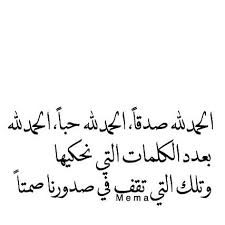 الحمدلله صدقاً، الحمدلله حباً، الحمدلله
بعدد الكلمات التي نحكيها
وتلك التي تقف في صدورنا صمتاً
Mema